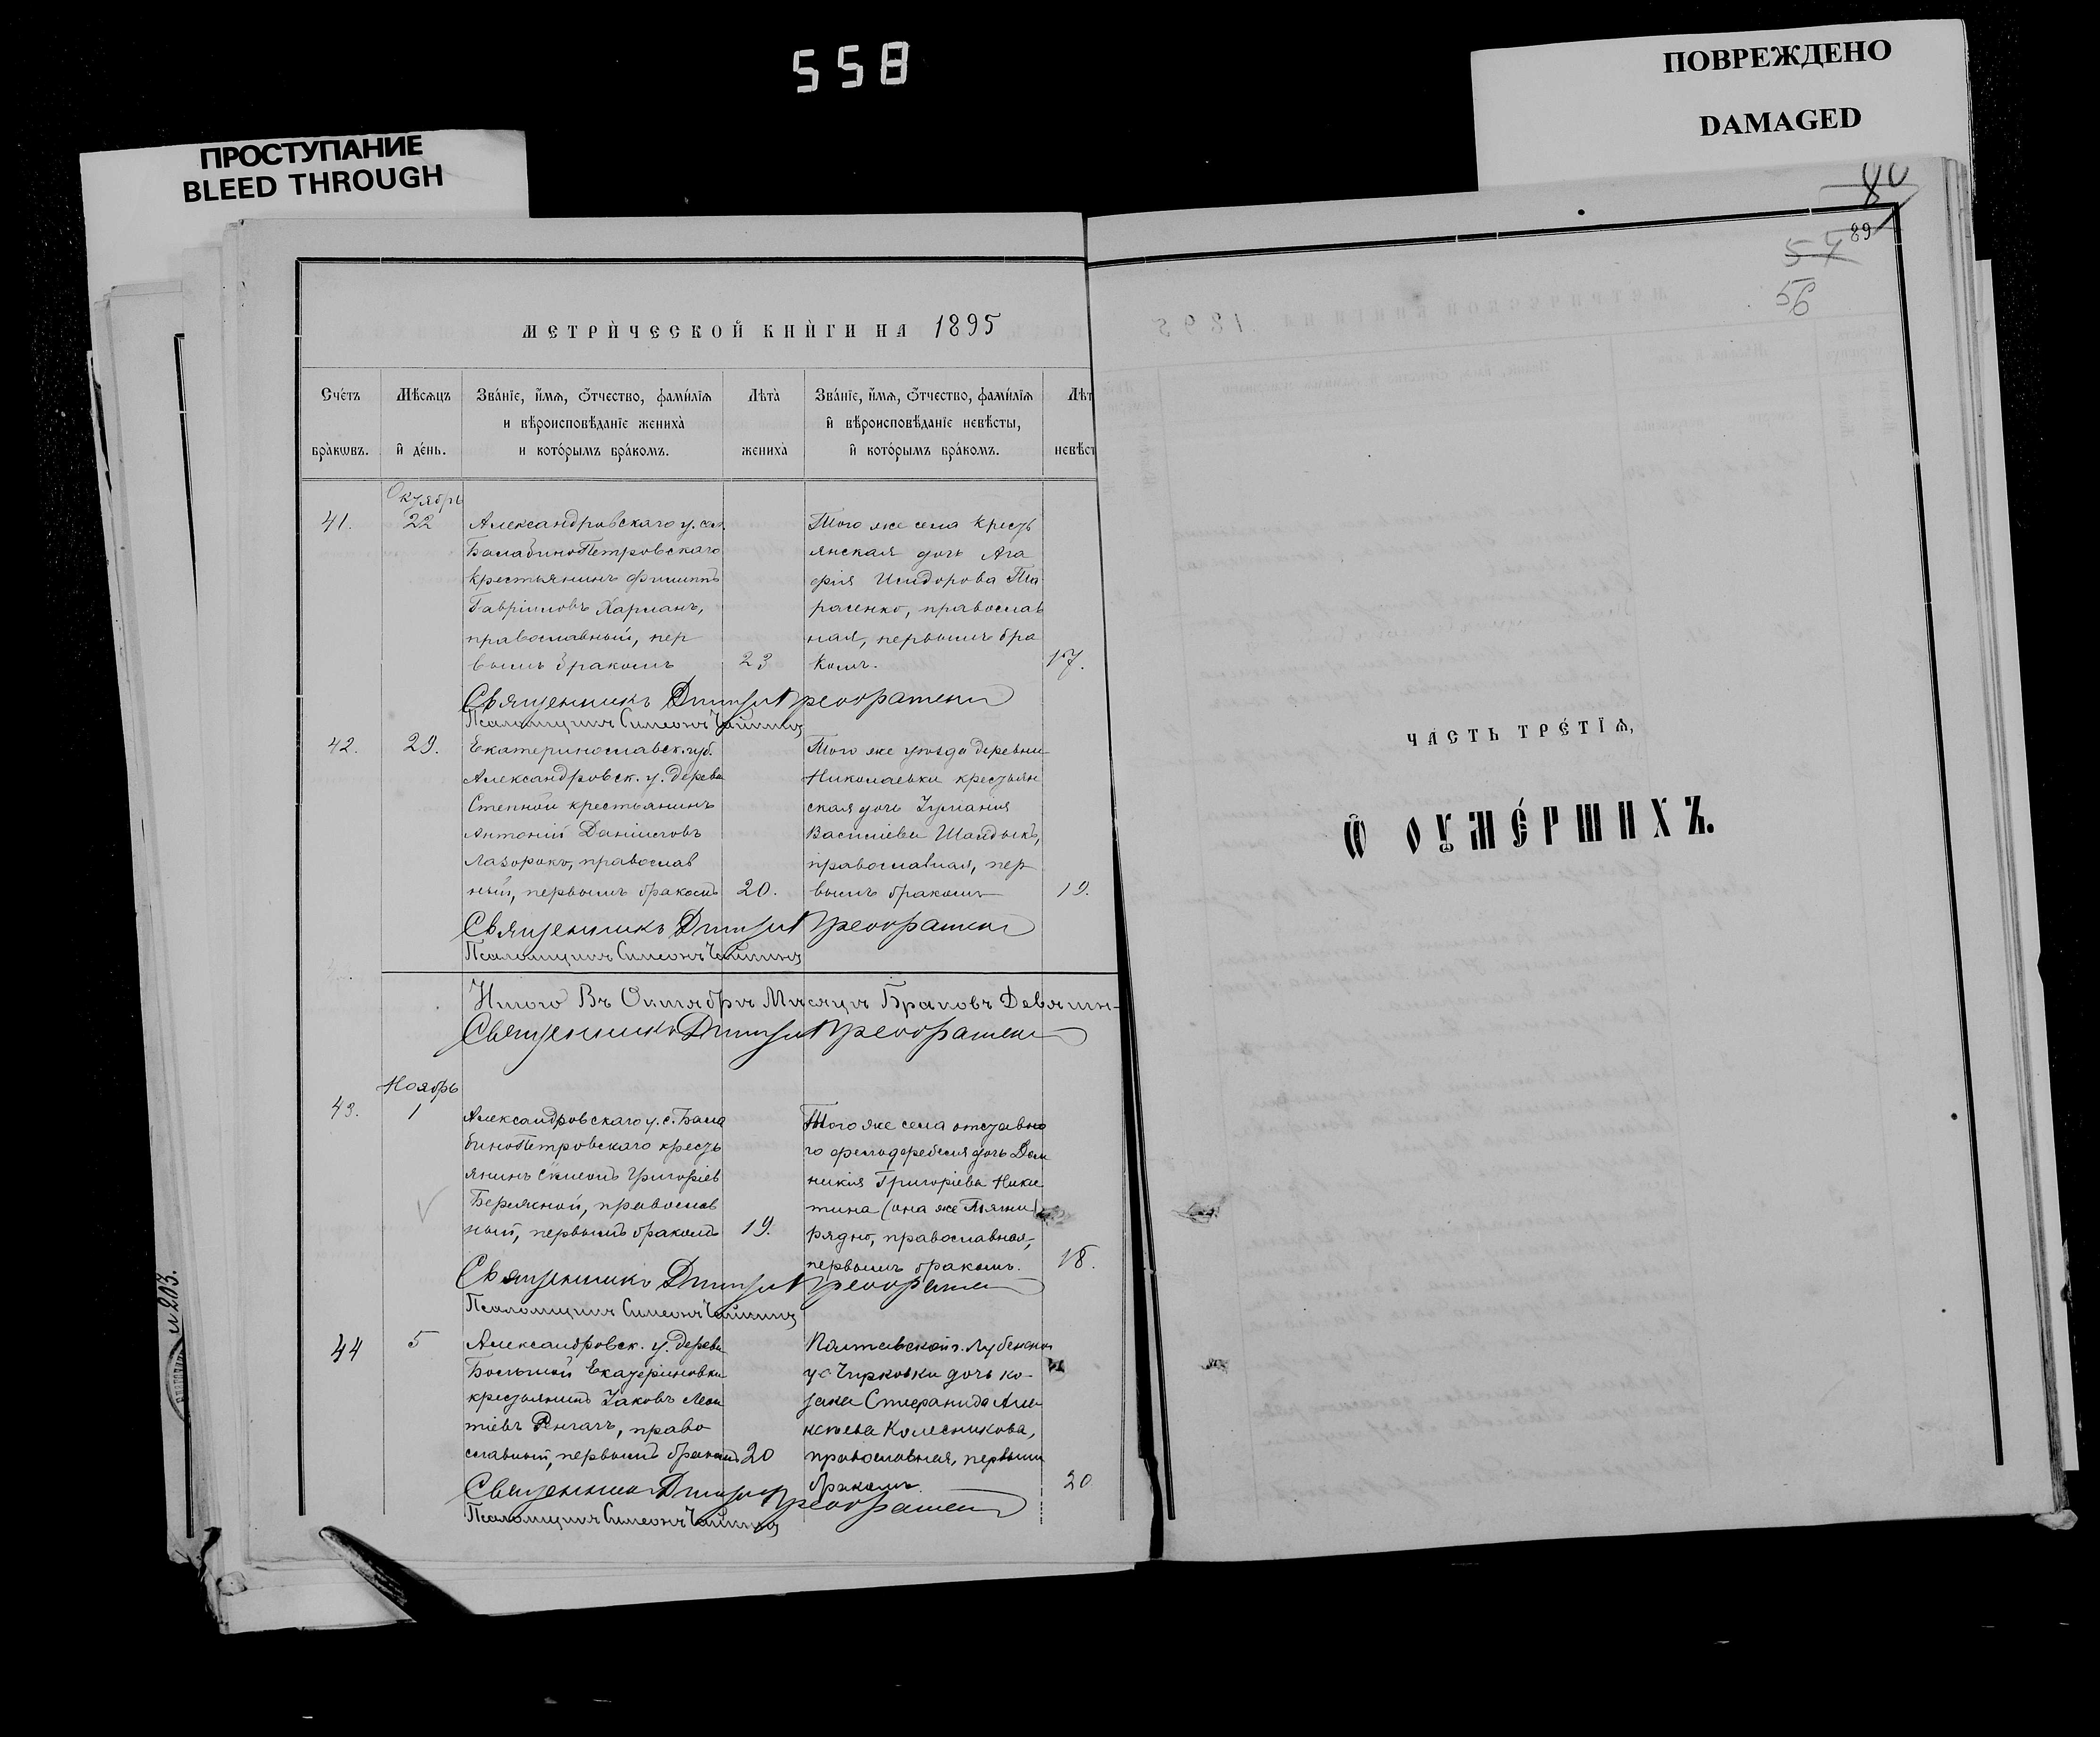 558
ПОВРЕЖДЕНО
DAMAGED
ПРОСТУПАНИЕ
BLEED THROUGH
МЕТРИ́ЧЕСКОЙ КНИ́ГИ НА 1895
Сче́тъ бра́кѡвъ.
Мѣ́сѧцъ и҆ де́нь.
Зва́нїе, и҆́мѧ, ѻ҆́тчество, фамі́лїѧ
и вѣроисповѣ́данїе жениха̀
и кото́рымъ бра́комъ.
Лѣта̀ жениха̀
Зва́нїе, и҆́мѧ, ѻ҆́тчество, фамі́лїѧ
и҆ вѣроисповѣ́данїе невѣ́сты,
и҆ кото́рымъ бра́комъ.
Лѣт
невѣ́ст
Октябрь
41.
22
Александровскаго у. сел.
БалабиноПетровскаго
крестьянинъ Филиппъ
Гавріиловъ Харланъ,
православный, пер
вымъ бракомъ
23
Того же села кресть
янская дочь Ага
фія Исидорова Та
расенко, православ
ная, первымъ бра
комъ.
17.
Священникъ Димитр Преображен
Псаломщикъ Симеонъ
42.
29.
Екатеринославск. губ.
Александровск. у. дерев
Степной крестьянинъ
Антоній Даніиловъ
православ
ный, первымъ бракомъ
20.
Того же уѣзда деревни
Николаевки крестьян
ская дочь Іуліанія
Василіева
православная, пер
вымъ бракомъ
19.
Священникъ Димитр Преображен
Псаломщикъ Симеонъ
Итого Въ Октябрѣ Мѣсяцѣ Браковъ Девять
Священникъ Димитр Преображен
Ноябрь
43.
1
Александровскаго у. с. Бала
биноПетровскаго кресть
янинъ Симеонъ Григоріев
Бережной, православ
ный, первымъ бракомъ
19.
Того же села отставно
го фельдфебеля дочь Дом
никія Григоріева Ники
тина (она же Тягни
рядно, православная,
первымъ бракомъ.
18.
Священникъ Димитр Преображен
Псаломщикъ Симеонъ
44
5
Александровск. у. дерев
Большой Екатериновки
крестьянинъ Іаковъ Леон
тіевъ право
славный, первымъ бракомъ
20
Полтавской г. Лубенска
у с Чирковки дочь ко-
зака Стефанида Але
ксѣева Колесникова,
православная, первымъ
бракомъ
20
Священникъ Димитр Преображен
Псаломщикъ Симеонъ
89
57
56
ЧА́СТЬ ТРЕ́ТЇѦ,
Ѽ ОУМЕ́РШИХЪ.
№203.